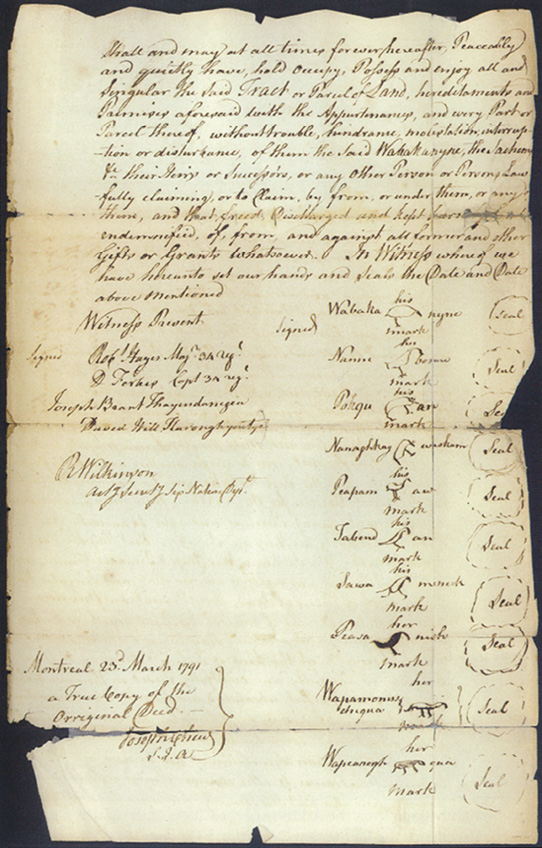 Shall and may at all times for ever hereafter, Peaceably
and quietly have, hold Occupy, Possess and enjoy all and
Singular the Said Tract or Parcel of Land, hereditaments and
Premises aforesaid with the Appurtenances, and every Part or
Parcel thereof, without trouble, hindrance, molestation, interrup-
-tion or disturbance, of them the Said Wabakanyne, the Sachems
&c their Heirs or Successors, or any other Person or Persons Law-
fully claiming, or to Claim, by from, or under them, or any
them, and that freed, Discharged and kept
endemnified, of, from, and against all former and other
Gifts or Grants whatsoever. In Witness whereof we
have hereunto set our hands and Seals the Date and Date
above mentioned
Witness Present
Signed
Wabaka his nyne Seal
mark
Signed Robt. Hoyes Majr. 34 regt.
Nanni his bosure Seal
mark
D Forbes Capt 34 regt.
Joseph Brant Thayendanegea
Pokqu his an Se
mark
David Hill
Nanaghkaw wesham Seal
R Wilkinson
Actg Secrety Six Nation Dept.
Peapam his aw Seal
mark
Tabend his an Seal
mark
Sawa his monck Seal
mark
Peasa her nish Seal
mark
Montreal 23d March 1791
a True Copy of the
Orriginal Deed
Joseph Chew
S. I. A
Wapamonis her chequa Seal
mark
Wapeanogh her qua Seal
mark